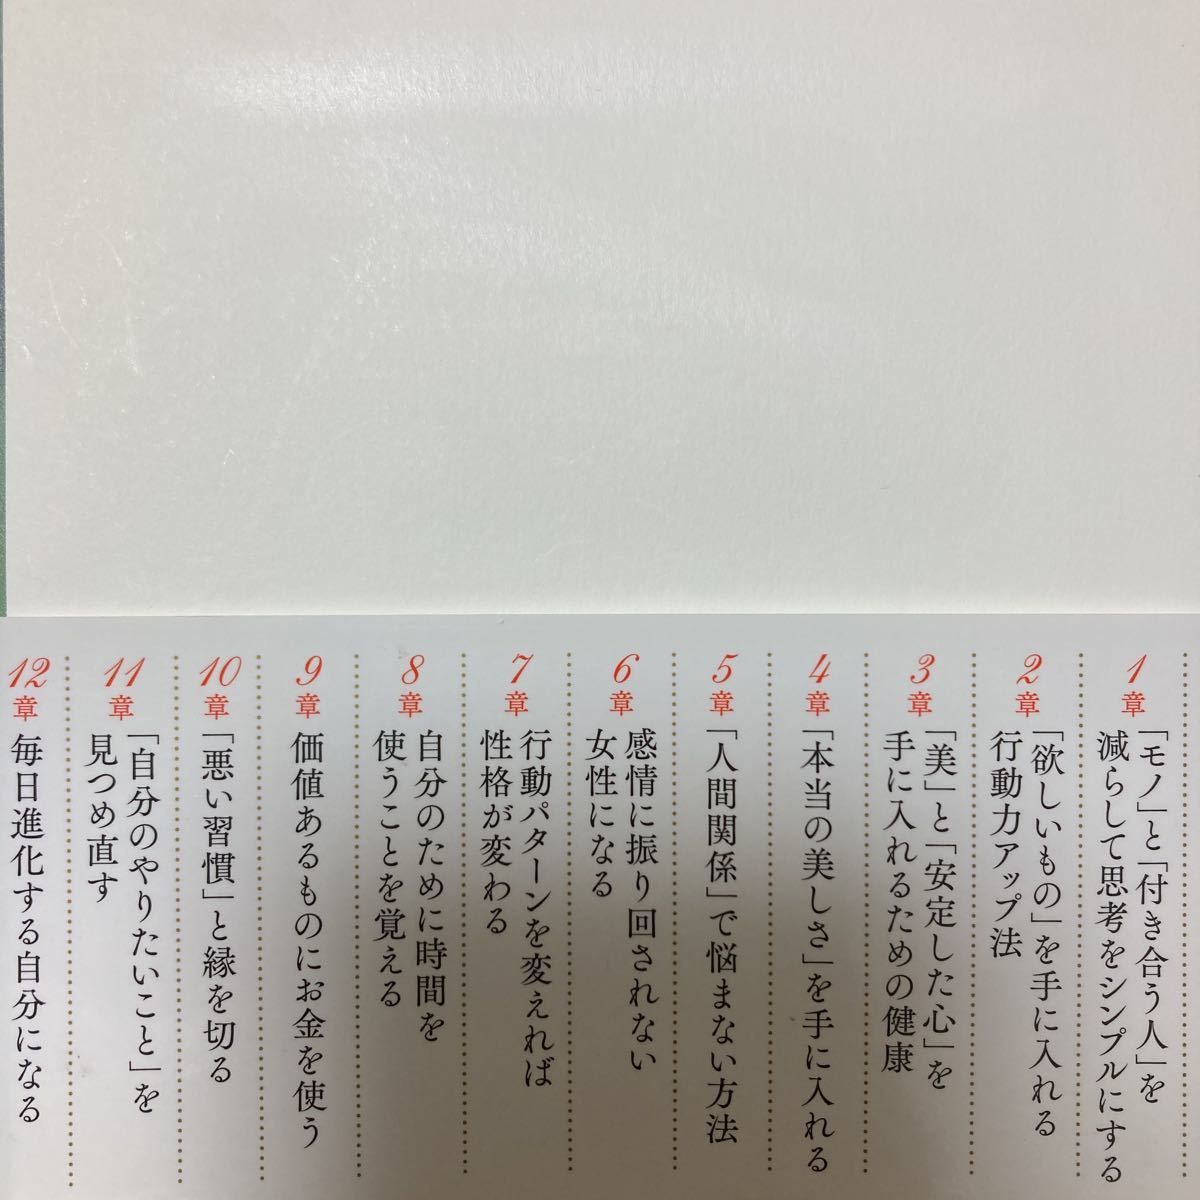 1章
「モノ」と「付き合う人」を
減らして思考をシンプルにする
2章
「欲しいもの」を手に入れる
行動力アップ法
3章
「美」と「安定した心」を
手に入れるための健康
4章
「本当の美しさ」を手に入れる
5章
「人間関係」で悩まない方法
6章
感情に振り回されない
女性になる
7章
行動パターンを変えれば
性格が変わる
8章
自分のために時間を
使うことを覚える
9章
価値あるものにお金を使う
10章
「悪い習慣」と縁を切る
11章
「自分のやりたいこと」を
見つめ直す
12章
毎日進化する自分になる